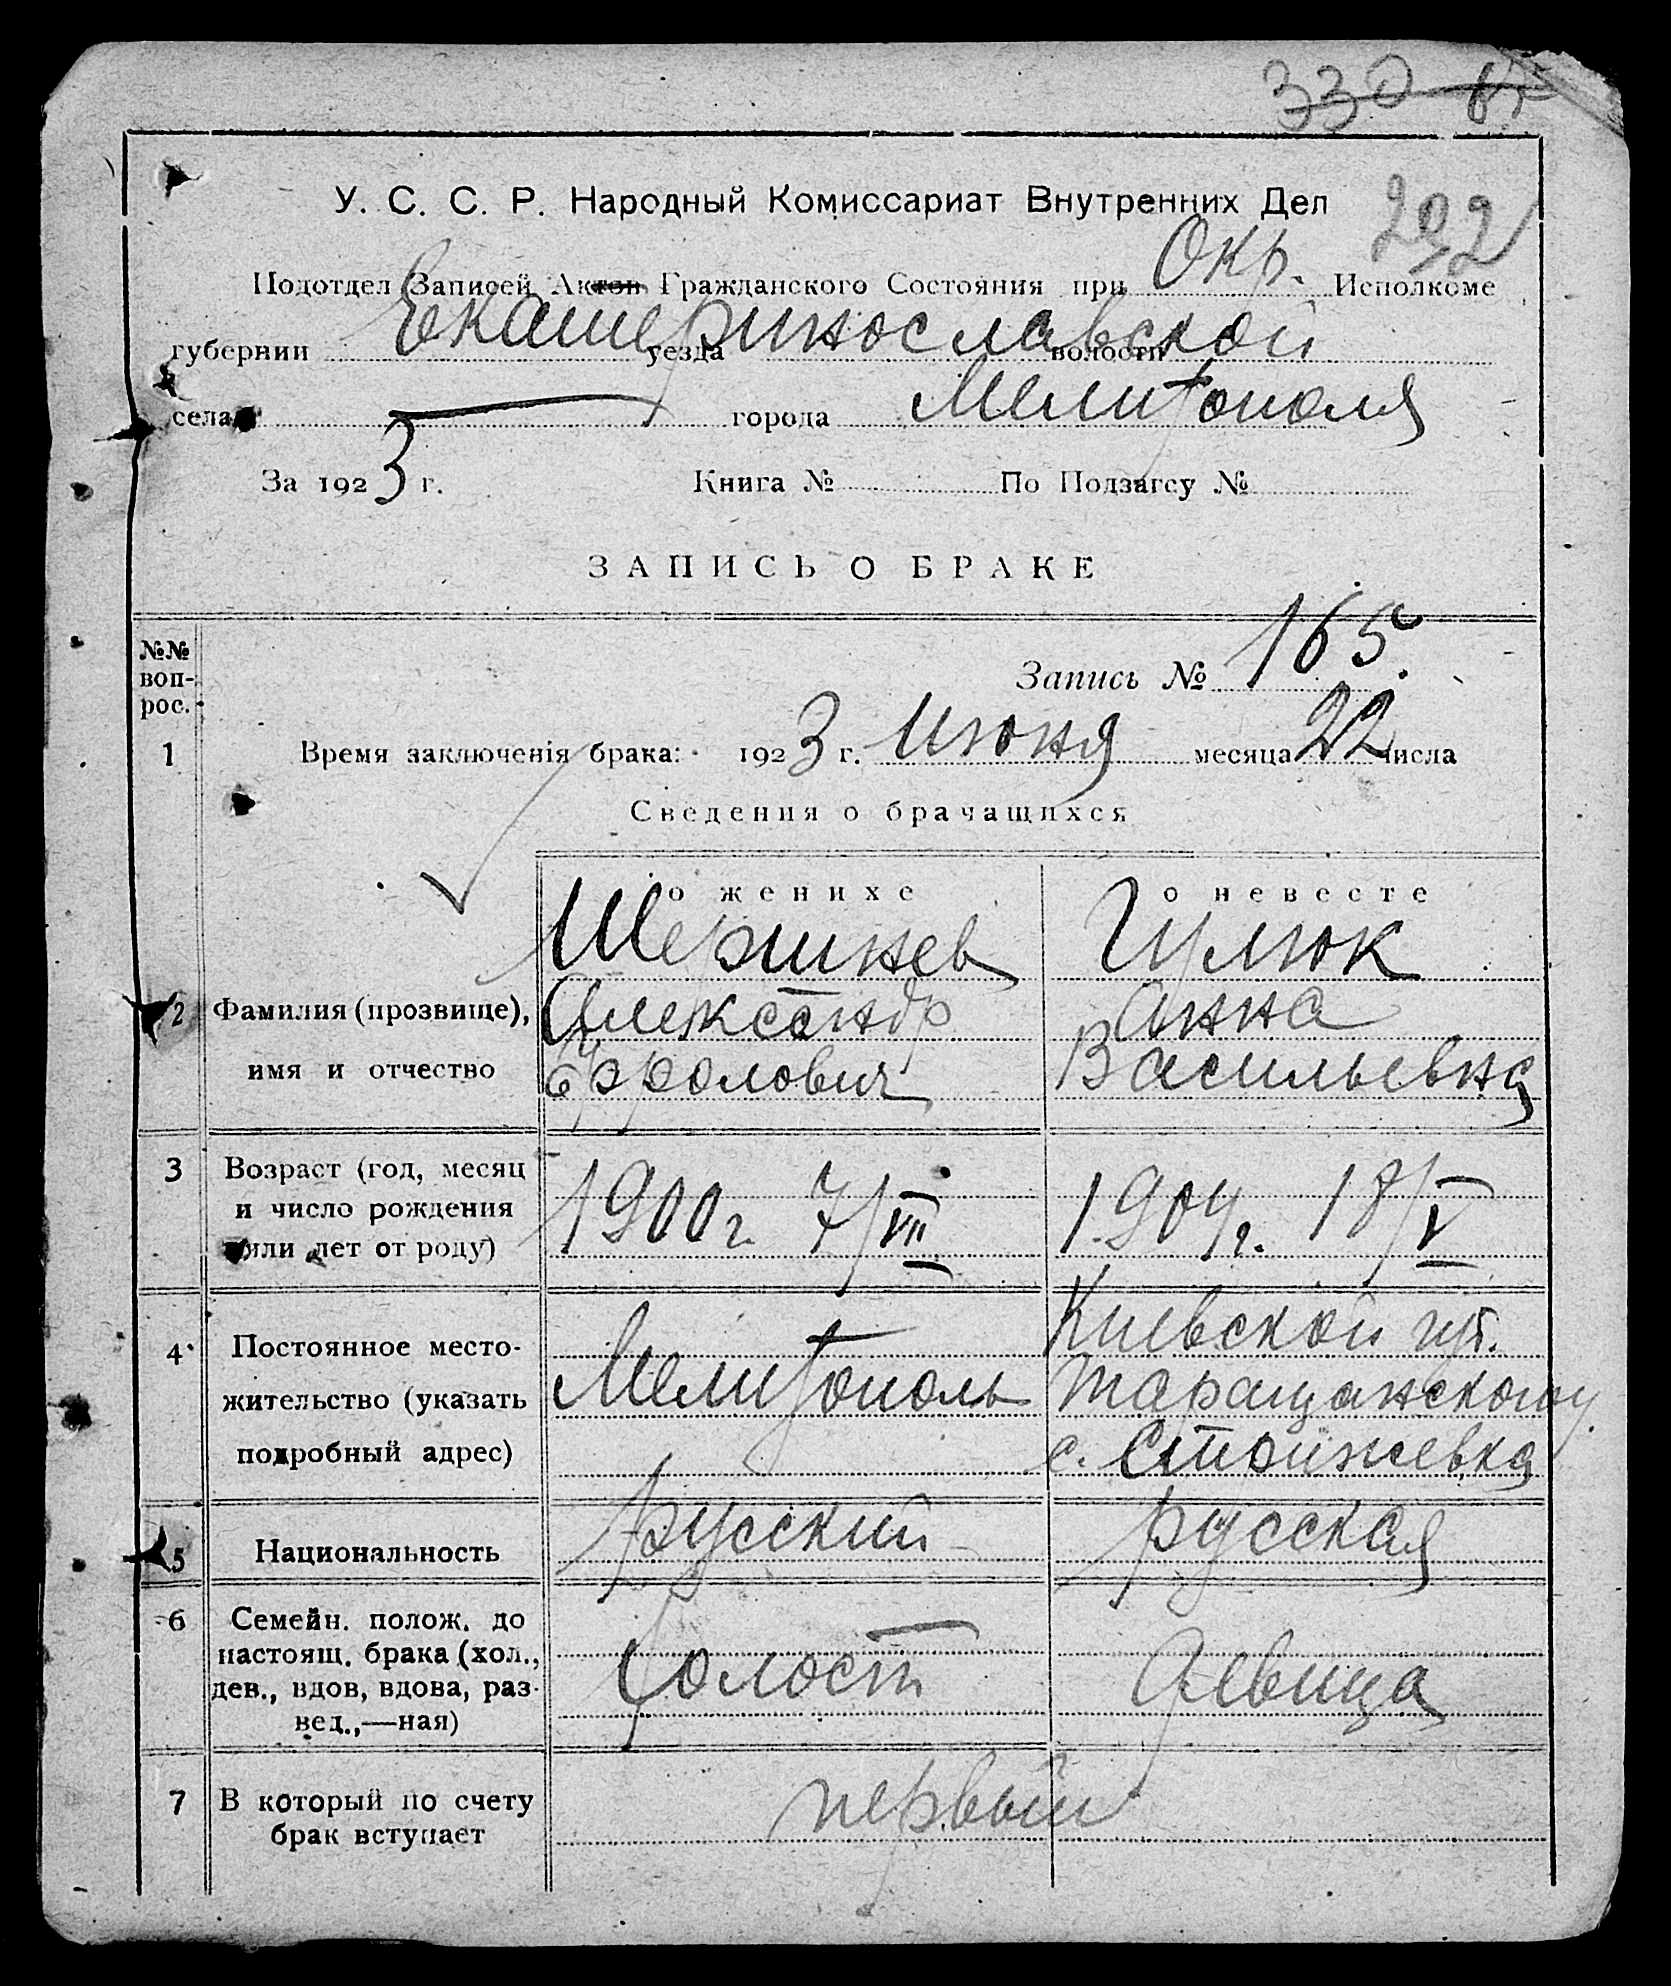 330
292
У. С. С. Р. Народный Комиссариат Внутренних Дел
Подотдел Записей Актов Гражданского Состояния при Окр. Исполкоме
губернии Екатеринославской уезда волости
села — города Мелитополя
За 1923 г. Книга № По Подзагсу №
ЗАПИСЬ О БРАКЕ
№№ воп-рос.
Запись № 165.
1 Время заключенія брака: 1923 г. Июня месяца 22 числа
Сведения о брачащихся
о женихе о невесте
Шершнев Гулюк
2 Фамилия (прозвище), Александр Анна
имя и отчество Фролович Васильевна
3 Возраст (год, месяц
и число рождения 1900 г. 7/VIII 1904 г. 18/V
или лет от роду)
4 Постоянное место- Киевской губ.
жительство (указать Мелитополь Таращанского у.
подробный адрес) с.
5 Национальность русский русская
6 Семейн. полож. до
настоящ. брака (хол., холост девица
дев., вдов, вдова, раз-
вед.,—ная)
7 В который по счету первый
брак вступает